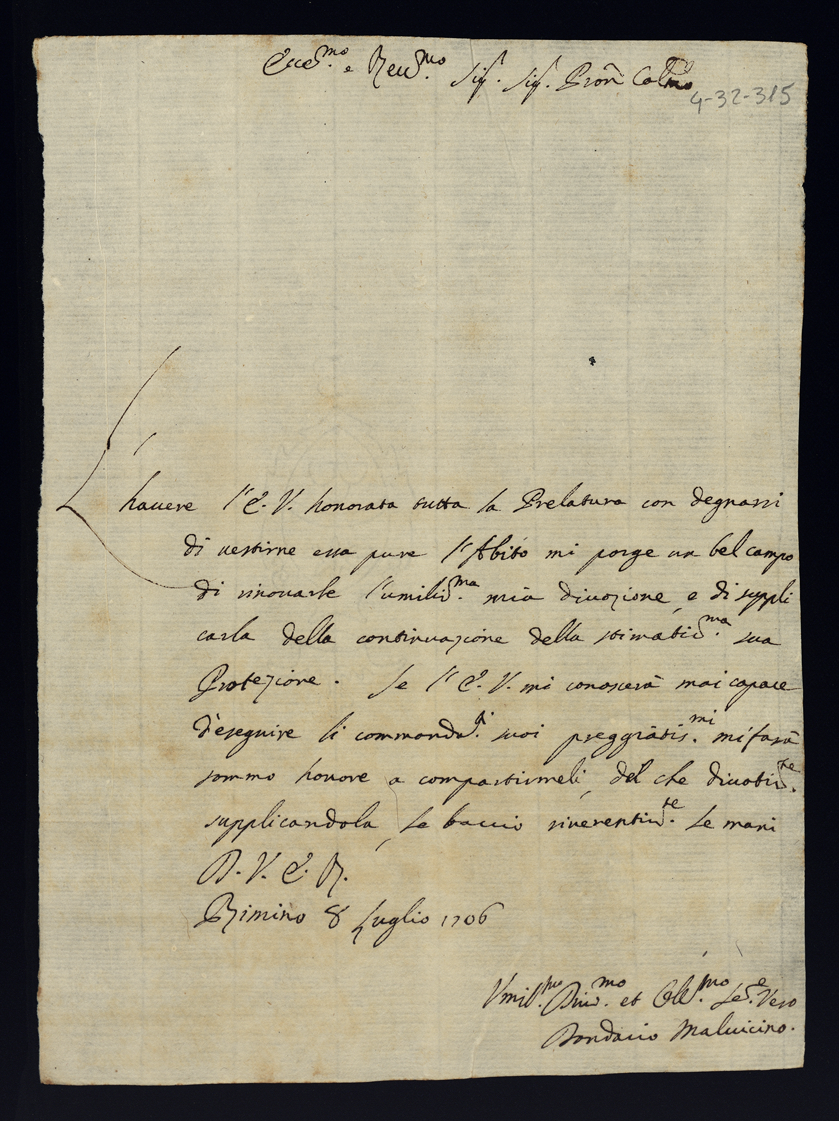 Ecc.mo e Reu.mo Sig. Sig. Pron Colmo
4-32-315
L'hauere l'E. V. honorata tutta la Prelatura con degnarsi
di uestirne essa pure l'Abito mi porge un bel campo
di rinouarle l'umilis.ma mia diuozione, e di suppli
carla della continuazione della stimatis.ma sua
Protezione. Se l'E. V. mi conoscerà mai capace
d'eseguire li command.i suoi preggiatis.mi mi farà
sommo honore a compartirmeli, del che diuotis.te
supplicandola, le baccio riuerentis.te le mani
D. V. E. R.
Rimino 8 Luglio 1706
Vmil.mo Diu.mo et Obl.mo Se.e Vero
Maluicino.